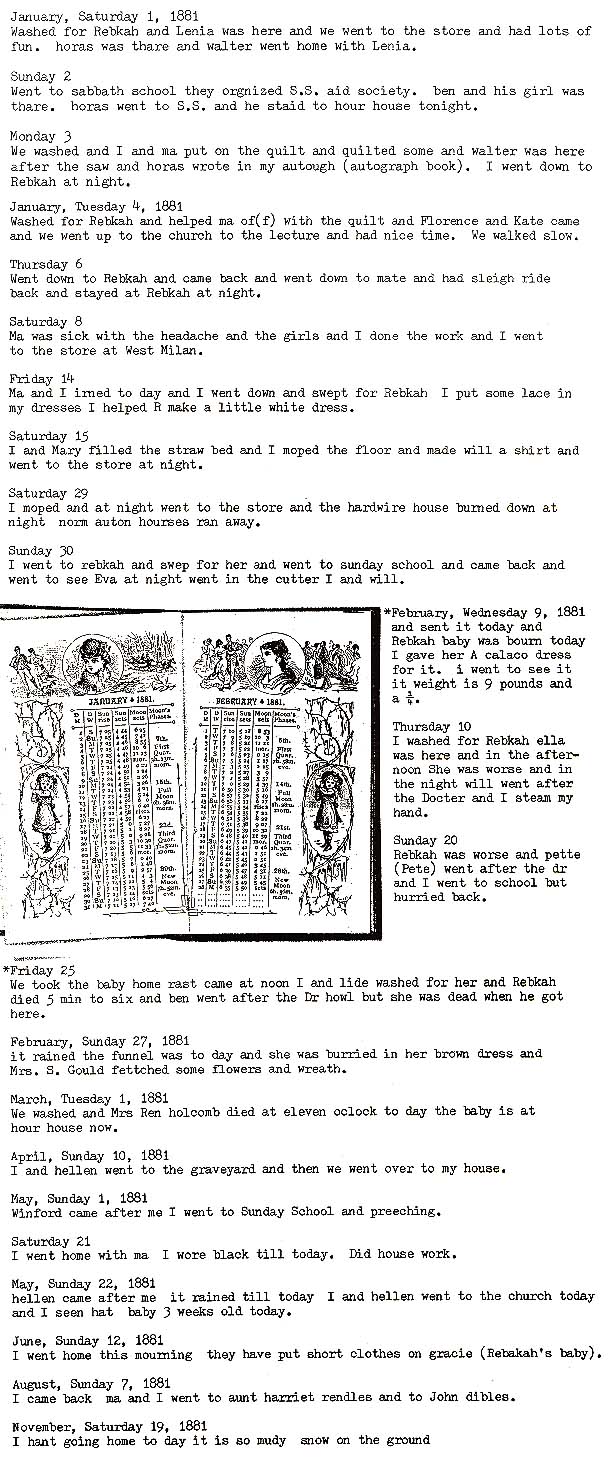 January, Saturday 1, 1881
Washed for Rebkah and Lenia was here and we went to the store and had lots of
fun.  horas was thare and walter went home with Lenia.
Sunday 2
Went to sabbath school they orgnized S.S. aid society.  ben and his girl was
thare.  horas went to S.S. and he staid to hour house tonight.
Monday 3
We washed and I and ma put on the quilt and quilted some and walter was here
after the saw and horas wrote in my autough (autograph book).  I went down to
Rebkah at night.
January, Tuesday 4, 1881
Washed for Rebkah and helped ma of(f) with the quilt and Florence and Kate came
and we went up to the church to the lecture and had nice time.  We walked slow.
Thursday 6
Went down to Rebkah and came back and went down to mate and had sleigh ride
back and stayed at Rebkah at night.
Saturday 8
Ma was sick with the headache and the girls and I done the work and I went
to the store at West Milan.
Friday 14
Ma and I irned to day and I went down and swept for Rebkah  I put some lace in
my dresses I helped R make a little white dress.
Saturday 15
I and Mary filled the straw bed and I moped the floor and made will a shirt and
went to the store at night.
Saturday 29
I moped and at night went to the store and the hardwire house burned down at
night  norm auton hourses ran away.
Sunday 30
I went to rebkah and swep for her and went to sunday school and came back and
went to see Eva at night went in the cutter I and will.
JANUARY 1881.
FEBRUARY 1881.
*February, Wednesday 9, 1881
and sent it today and
Rebkah baby was bourn today
I gave her A calaco dress
for it.  i went to see it
it weight is 9 pounds and
a ¾.
Thursday 10
I washed for Rebkah ella
was here and in the after-
noon She was worse and in
the night will went after
the Docter and I steam my
hand.
Sunday 20
Rebkah was worse and pette
(Pete) went after the dr
and I went to school but
hurried back.
*Friday 25
We took the baby home rast came at noon I and lide washed for her and Rebkah
died 5 min to six and ben went after the Dr howl but she was dead when he got
here.
February, Sunday 27, 1881
it rained the funnel was to day and she was burried in her brown dress and
Mrs. S. Gould fettched some flowers and wreath.
March, Tuesday 1, 1881
We washed and Mrs Ren holcomb died at eleven oclock to day the baby is at
hour house now.
April, Sunday 10, 1881
I and hellen went to the graveyard and then we went over to my house.
May, Sunday 1, 1881
Winford came after me I went to Sunday School and preeching.
Saturday 21
I went home with ma  I wore black till today.  Did house work.
May, Sunday 22, 1881
hellen came after me  it rained till today  I and hellen went to the church today
and I seen hat  baby 3 weeks old today.
June, Sunday 12, 1881
I went home this mourning  they have put short clothes on gracie (Rebakah's baby).
August, Sunday 7, 1881
I came back  ma and I went to aunt harriet rendles and to John dibles.
November, Saturday 19, 1881
I hant going home to day it is so mudy  snow on the ground